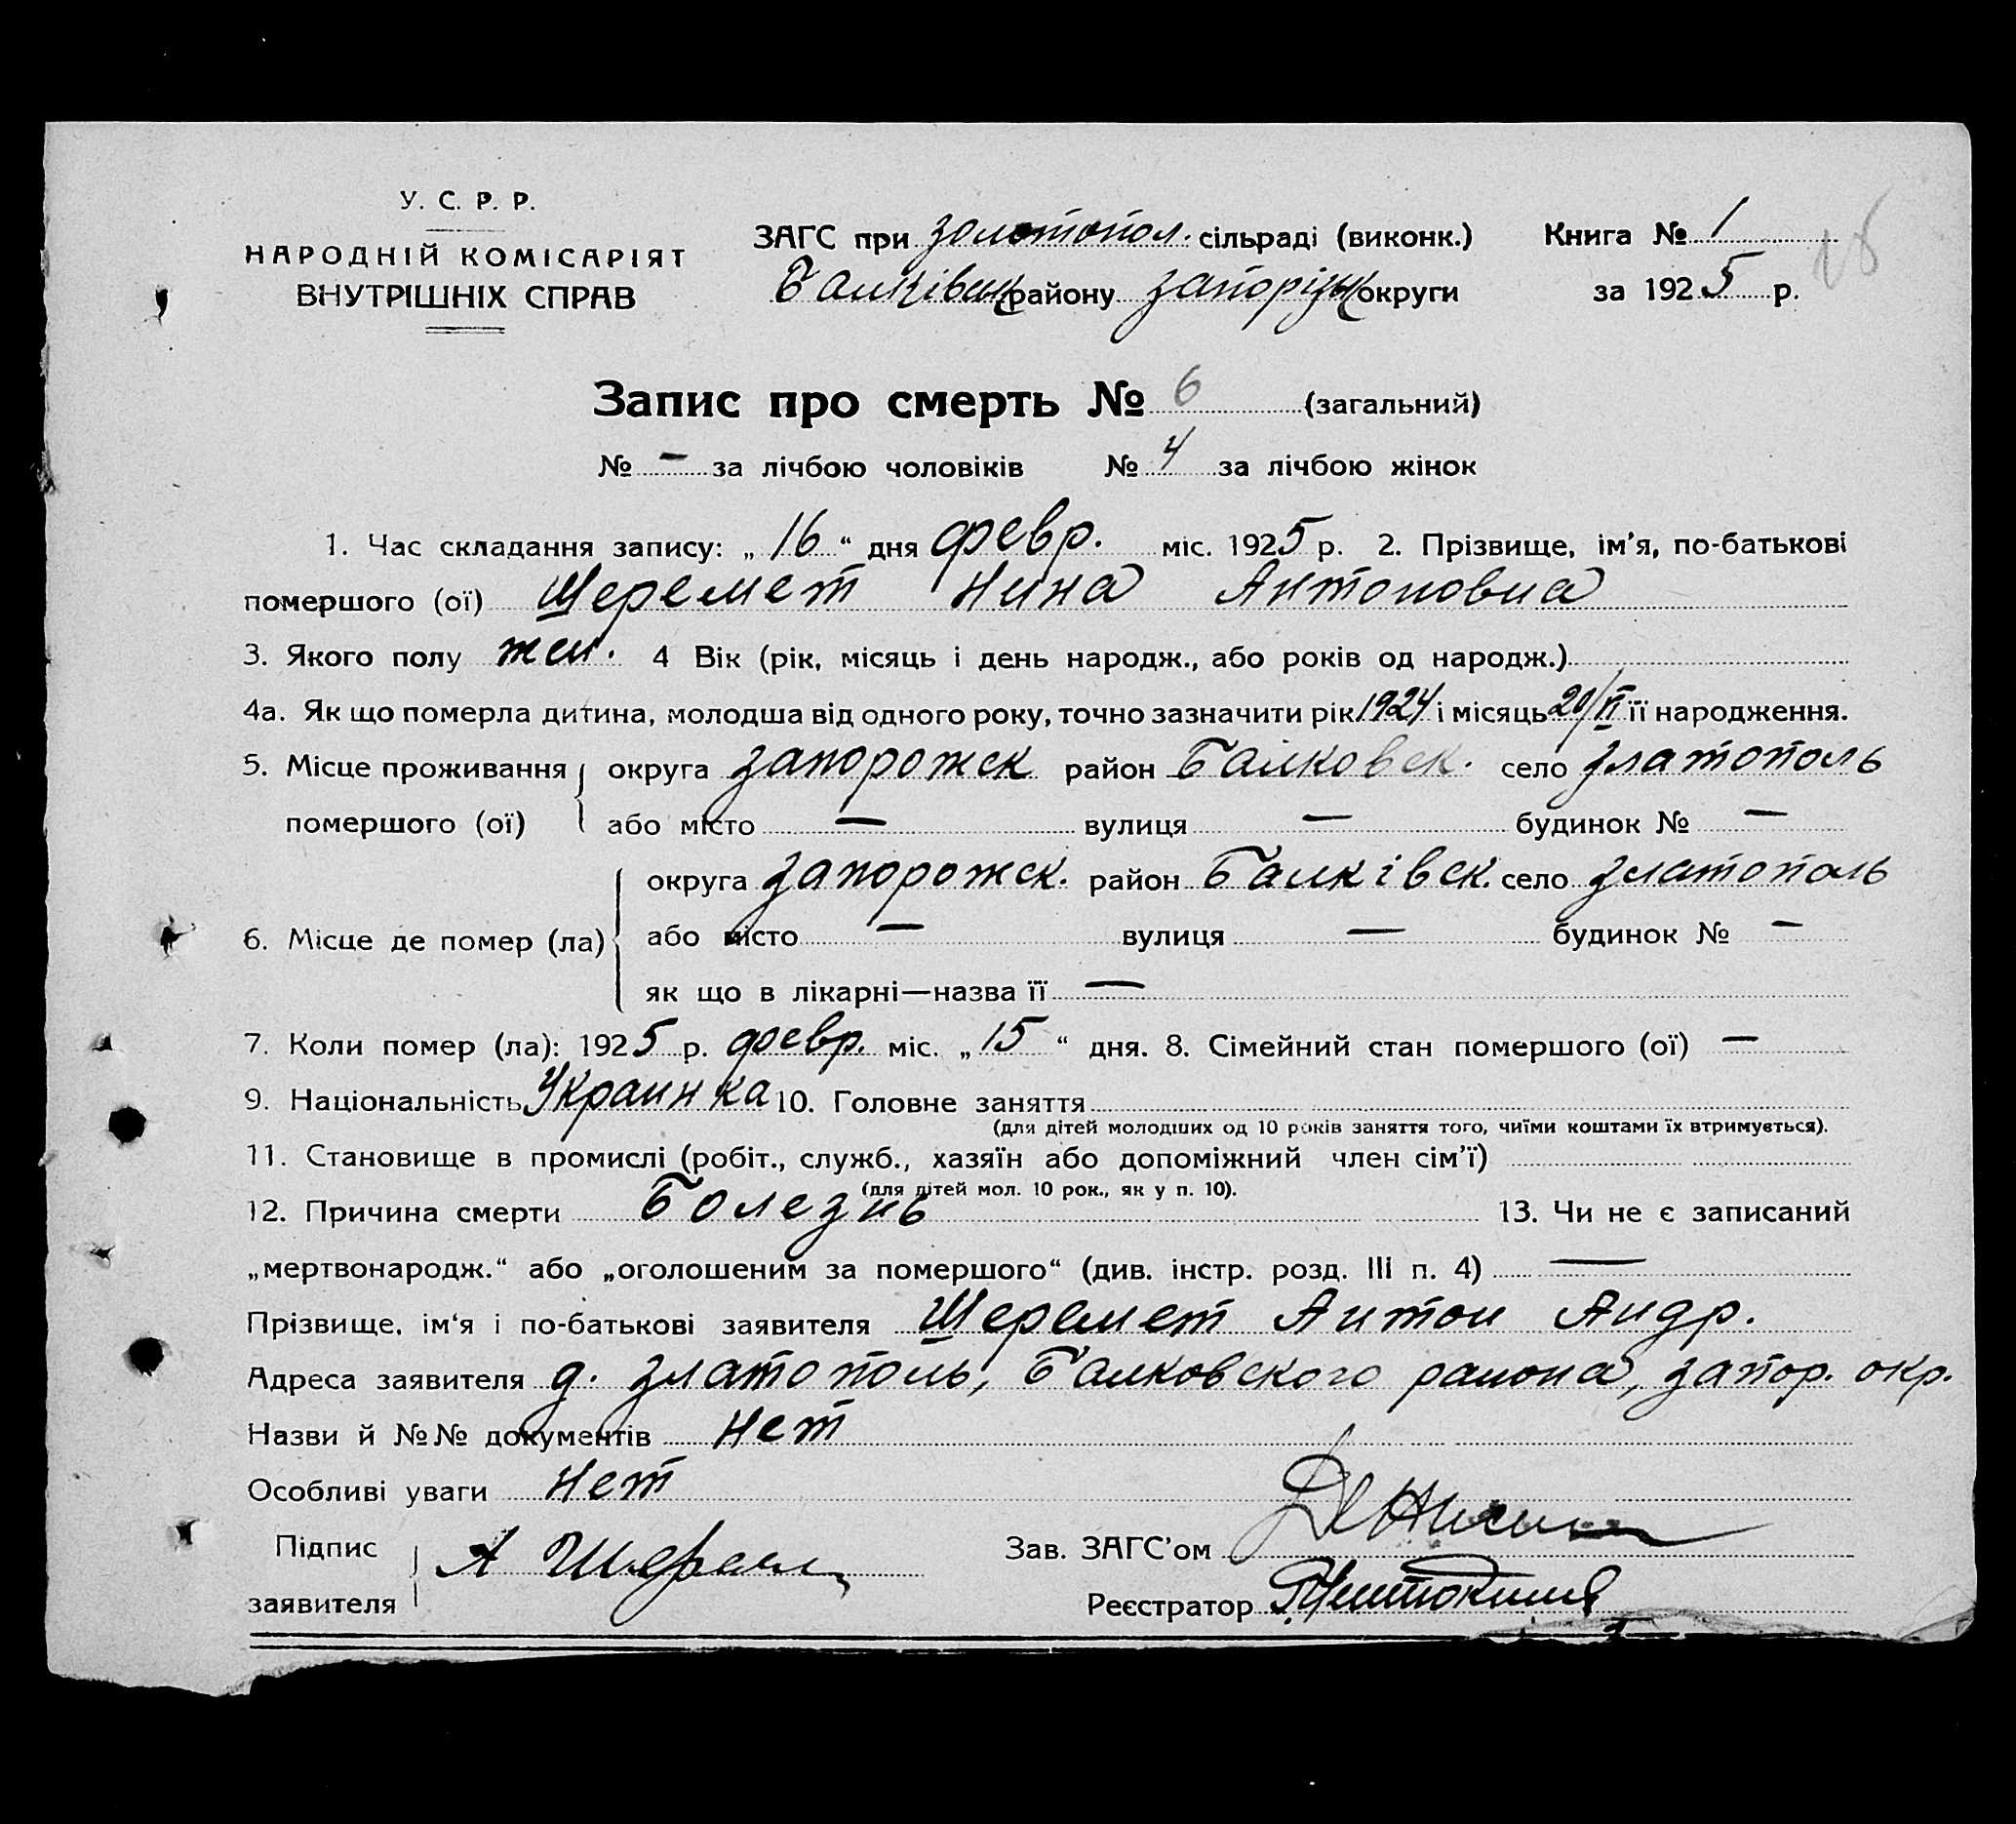 У. С. Р. Р.
НАРОДНІЙ КОМІСАРІЯТ
ВНУТРІШНІХ СПРАВ
ЗАГС при золотопол. сільраді (виконк.) Книга № 1
Балківськ району запорізьк округи за 1925 р.
Запис про смерть № 6 (загальний)
№ — за лічбою чоловіків № 4 за лічбою жінок
1. Час складання запису: „16“ дня февр. міс. 1925 р. 2. Прізвище, ім’я, по-батькові
помершого (ої) Шеремет Нина Антоновна
3. Якого полу жен. 4 Вік (рік, місяць і день народж., або років од народж.)
4а. Як що померла дитина, молодша від одного року, точно зазначити рік 1924 і місяць 20/VI її народження.
5. Місце проживання округа запорожск район Балковск. село златополь
помершого (ої) або місто — вулиця — будинок № —
округа запорожск. район Балківск. село златополь
6. Місце де помер (ла) або місто — вулиця — будинок № —
як що в лікарні—назва її —
7. Коли помер (ла): 1925 р. февр. міс. „15“ дня. 8. Сімейний стан помершого (ої) —
9. Національність Украинка 10. Головне заняття
(для дітей молодших од 10 років заняття того, чиїми коштами їх втримується).
11. Становище в промислі (робіт., служб., хазяїн або допоміжний член сім’ї)
(для дітей мол. 10 рок., як у п. 10).
12. Причина смерти Болезнь 13. Чи не є записаний
„мертвонародж.“ або „оголошеним за помершого“ (див. інстр. розд. III п. 4) —
Прізвище, ім‘я і по-батькові заявителя Шеремет Антон Андр.
Адреса заявителя д. златополь, Балковского района, запор. окр.
Назви й №№ документів нет
Особливі уваги нет
Підпис
заявителя А Шерем
Зав. ЗАГС’ом
Реєстратор